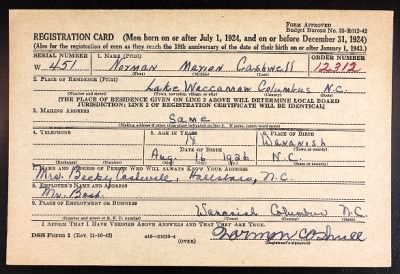 FORM APPROVED
Budget Bureau No. 33-R012-42
REGISTRATION CARD—(Men born on or after July 1, 1924, and on or before December 31, 1924)
(Also for the registration of men as they reach the 18th anniversary of the date of their birth on or after January 1, 1943.)
SERIAL NUMBER 1. NAME (Print) ORDER NUMBER
W-451 Norman Marion Cashwell 12,312
(First) (Middle) (Last)
2. PLACE OF RESIDENCE (Print)
Lake Waccamaw Columbus N.C.
(Number and street) (Town, township, village or city) (County) (State)
[THE PLACE OF RESIDENCE GIVEN ON LINE 2 ABOVE WILL DETERMINE LOCAL BOARD
JURISDICTION; LINE 2 OF REGISTRATION CERTIFICATE WILL BE IDENTICAL]
3. MAILING ADDRESS
Same
[Mailing address if other than place indicated on line 2. If same, insert word same]
4. TELEPHONE 5. AGE IN YEARS 6. PLACE OF BIRTH
18 Wananish
DATE OF BIRTH
Aug. 16 1926 N.C.
7. NAME AND ADDRESS OF PERSON WHO WILL ALWAYS KNOW YOUR ADDRESS
Mrs. Becky Cashwell, Hallsboro, N.C.
8. EMPLOYER'S NAME AND ADDRESS
Mr.
9. PLACE OF EMPLOYMENT OR BUSINESS
Wananish Columbus N.C.
(Number and street or R. F. D. number) (Town) (County) (State)
I AFFIRM THAT I HAVE VERIFIED ABOVE ANSWERS AND THAT THEY ARE TRUE.
DSS Form 1 (Rev. 11-16-42) (OVER) Norman Cashwell
(Registrant's signature)